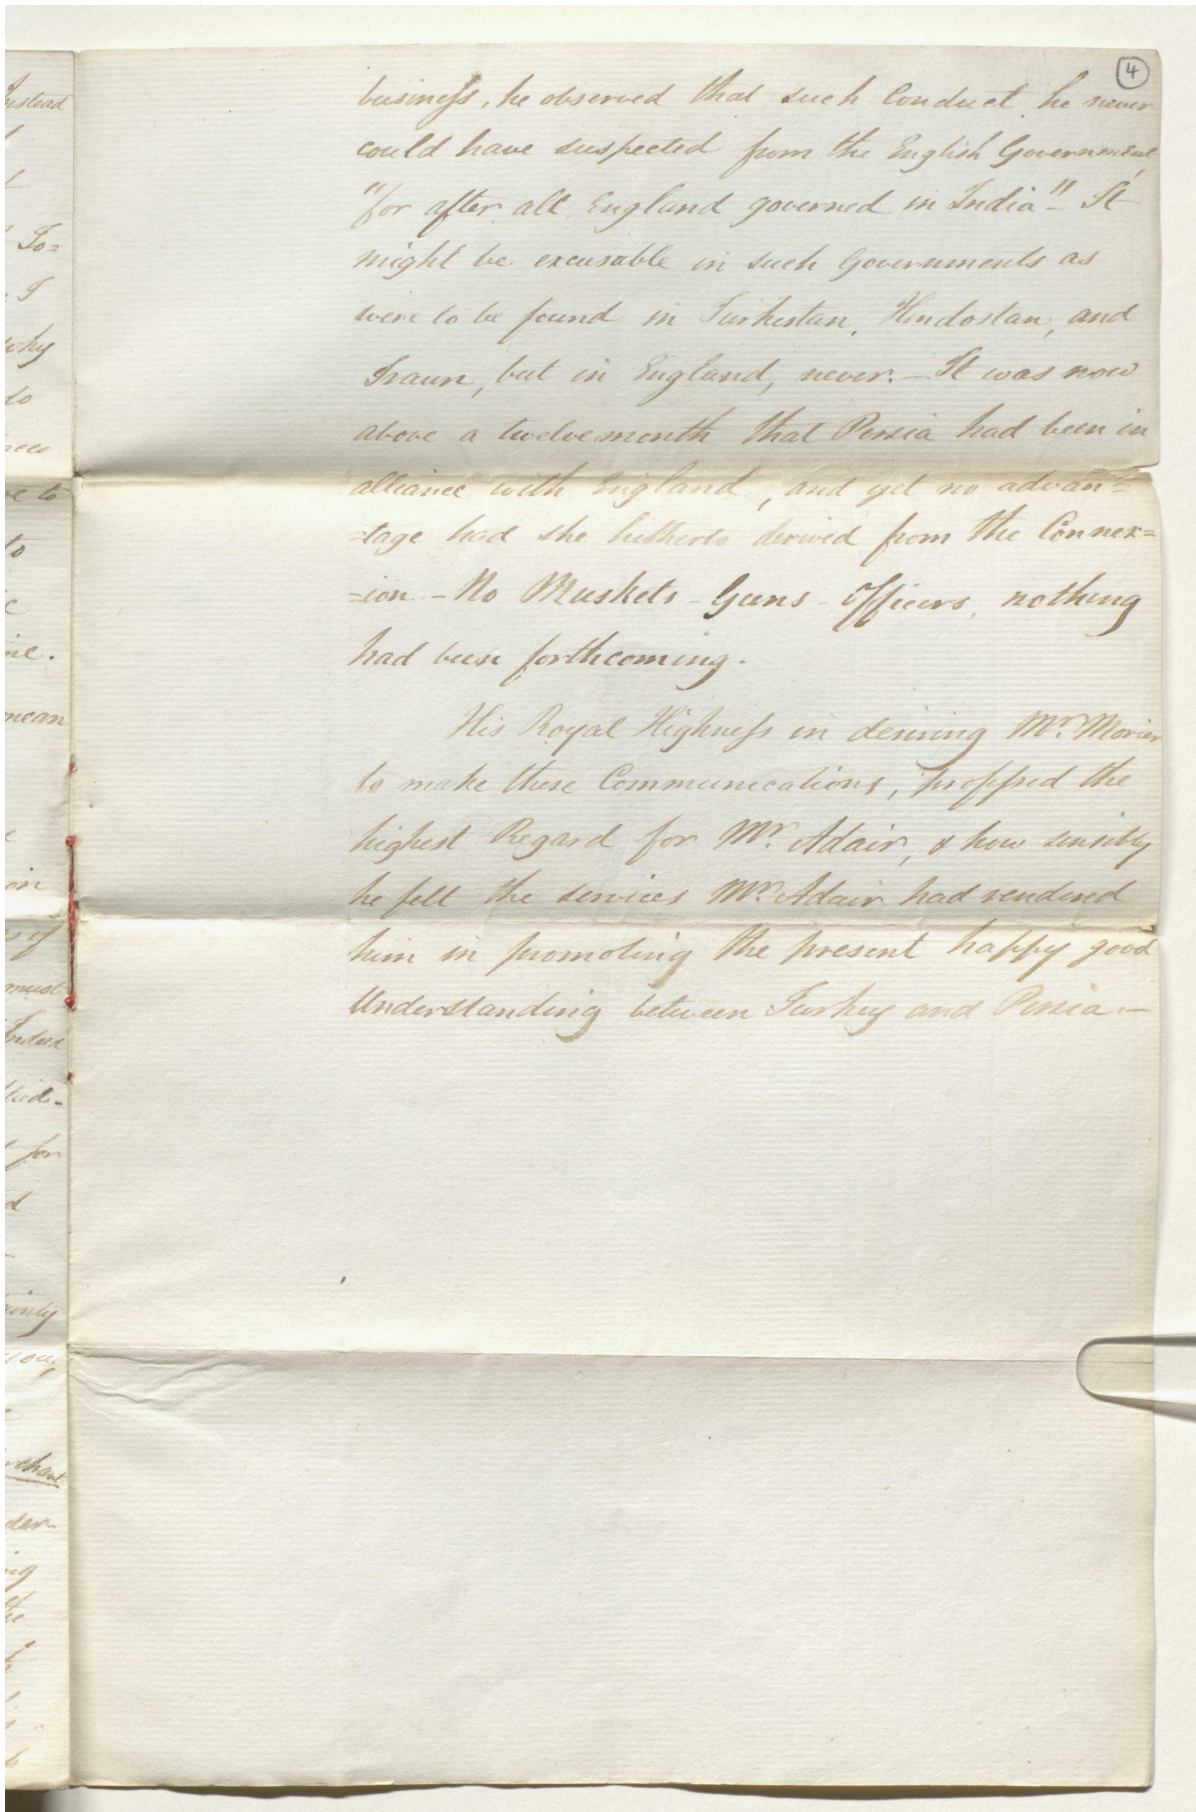 4
business, he observed that such Conduct he never
could have suspected from the English Government,
"for after all England governed in India" - It
might be excusable in such Governments as
were to be found in Turkestan, Hindostan, and
Iraun, but in England, never. - It was now
above a twelvemonth that Persia had been in
alliance with England, and yet no advan=
=tage had she hitherto derived from the Connex=
=ion - No Muskets - Guns - Officers, nothing
had been forthcoming.
His Royal Highness in desiring Mr. Morier
to make these Communications, professed the
highest Regard for Mr. Adair, & how sensibly
he felt the services Mr. Adair had rendered
him in promoting the present happy good
Understanding between Turkey and Persia. -